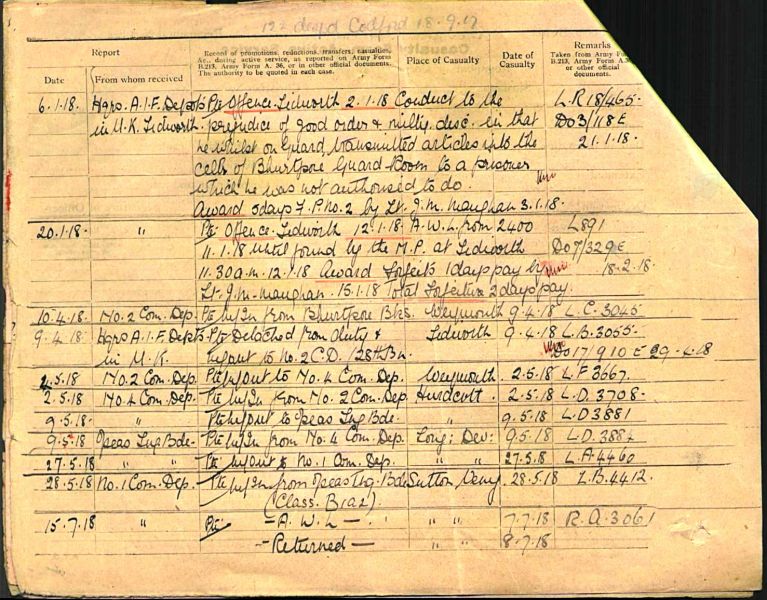 12 days Codford 18.9.17
Report
Record of promotions, reductions, transfers, casualties, &c., during active service, as reported on Army Form B.213, Army Form A. 36, or in other official documents. The authority to be quoted in each case.
Place of Casualty
Date of Casualty
Remarks
Taken from Army Form B.213, Army Form A.36, or other official documents.
Date
From whom received
6.1.18. Hqrs. A.I.F. Depots Pte Offence. Lidworth 2.1.18 Conduct to the L.R 18/465
in U.K. Lidworth. prejudice of good order & milty. disc. in that Do3/118 E
he whilst on Guard transmitted articles into the 21.1.18.
cells of Bhurtpore Guard Room to a prisoner
which he was not authorised to do.
Award 5 days F.P. No. 2 by Lt. J.M. Maughan 3.1.18.
20.1.18. " Pte Offence. Lidworth 12.1.18 A.W.L. from 2400 L891
11.1.18 until found by the M.P. at Lidworth Do7/329 E
11.30 a.m. 12.1.18 Award forfeits 1 days pay by 18.2.18
Lt. J.M. Maughan. 15.1.18 Total forfeiture 2 days pay.
10.4.18. No. 2 Com. Dep. Pte In from Bhurtpore Bks. Weymouth 9.4.18 L.C. 3045
9.4.18 Hqrs A.I.F. Depots Pte Detached from duty & Lidworth 9.4.18 L.B. 3055.
in U.K. out to No. 2 C.D. /28th Bn. Do17/910 E 29.4.18
2.5.18 No. 2 Com. Dep. Pte out to No. 4 Com. Dep. Weymouth. 2.5.18 L.F 3667.
2.5.18 No. 4 Com. Dep. Pte In from No. 2 Com. Dep Hurdcott. 2.5.18 L.D. 3708.
9.5.18 " Pte out to Oseas Trg Bde. 9.5.18 L.D 3881
9.5.18 Oseas Trg Bde. Pte In from No. 4 Com. Dep. Long: Dev: 9.5.18 L.D. 3884
27.5.18 " " Pte out to No. 1 Com. Dep. " " 27.5.18 L.A. 4460
28.5.18 No. 1 Com. Dep. Pte In from Oseas Trg. Bde Sutton Veny 28.5.18 L.B. 4412.
(Class. B1a2)
15.7.18 " Pte — A.W.L — " " 7.7.18 R.A. 3061
— Returned — " " 8.7.18